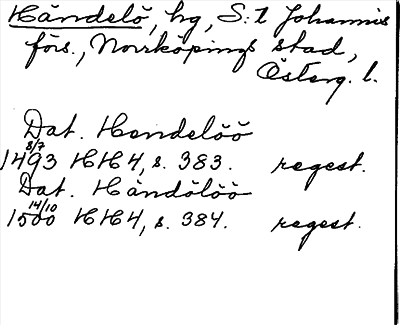 Händelö, hg, S:t Johannis
förs., Norrköpings stad,
Österg. l.
Dat. Hendelöö
8/7
1493 HH4, s. 383. regest.
Dat. Händölöö
14/10
1500 HH4, s. 384. regest.